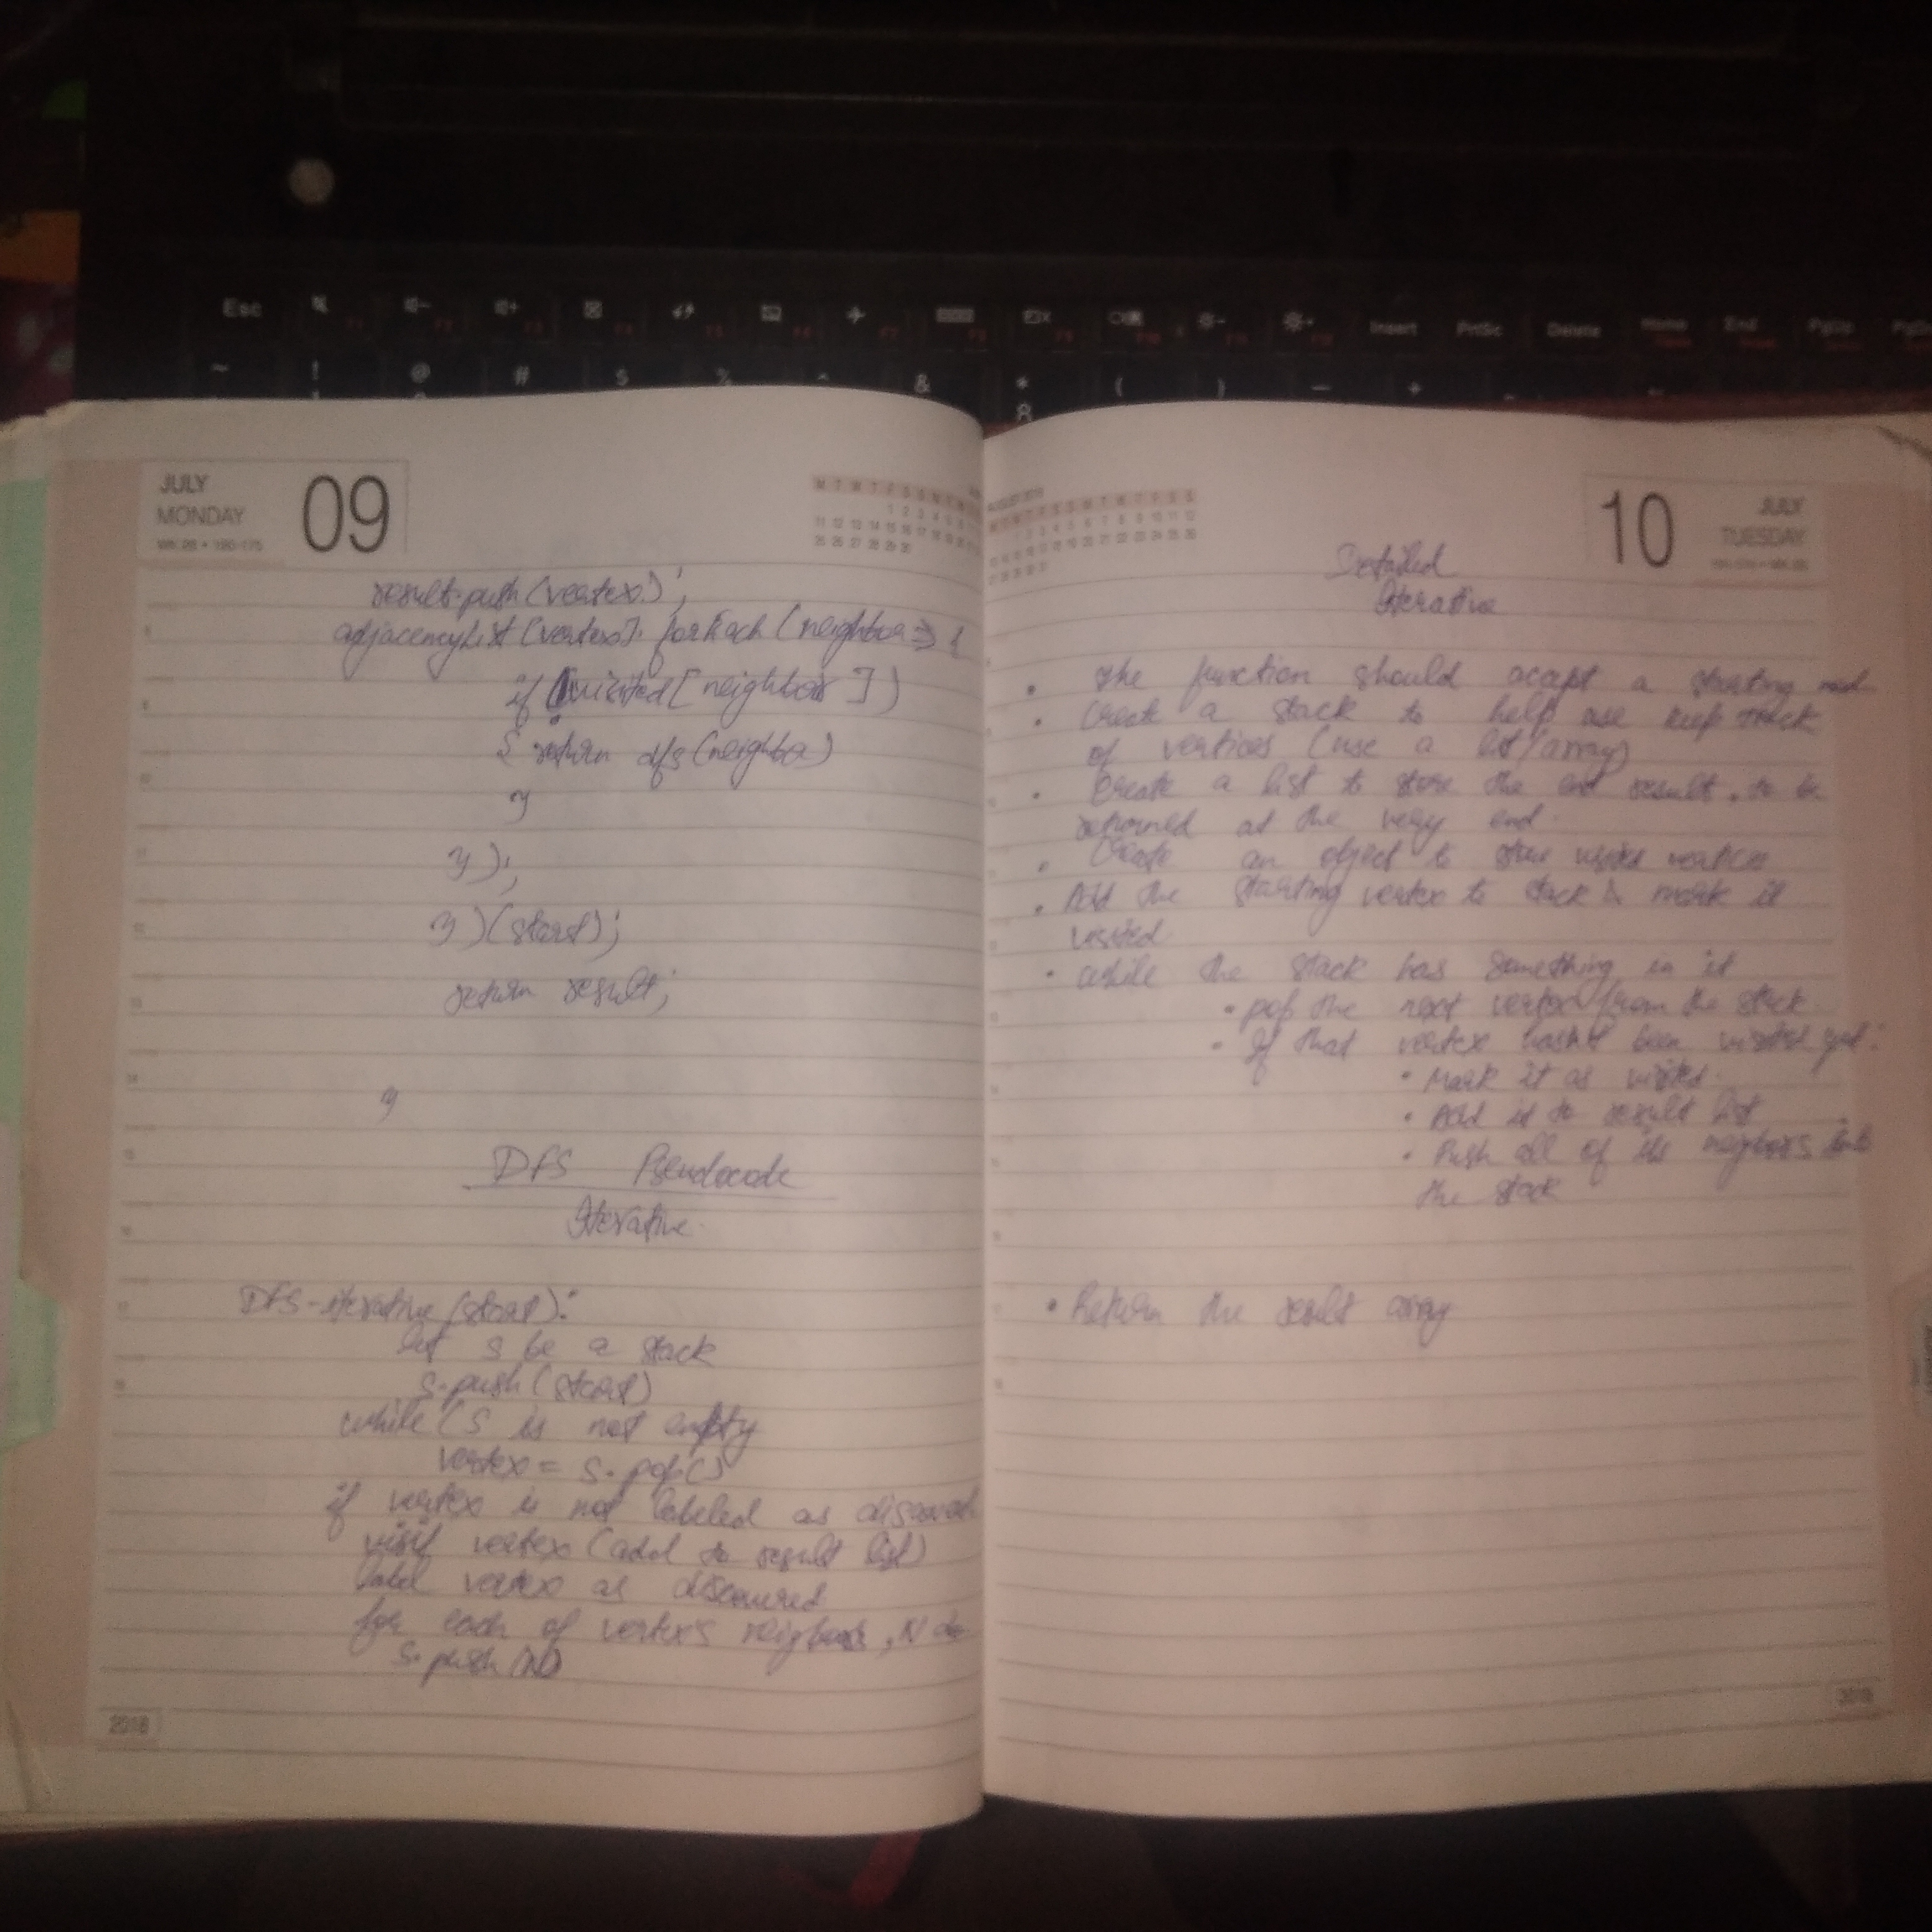 Esc
Insert
PrtSc
Delete
Home
End
PgUp
~ ! @ # $ % ^ & * ( ) _ +
8
JULY
MONDAY
09
result.push(vertex);
adjacencyList[vertex].forEach(neighbor => {
if (!visited[neighbor])
{ return dfs(neighbor)
}
});
})(start);
return result;
}
DFS Pseudocode
Iterative
DFS-iterative(start):
let s be a stack
s.push(start)
while (S is not empty
vertex = s.pop()
if vertex is not labeled as
visit vertex (add to result list)
label vertex as discovered
for each of vertex's neighbors, N do
s.push(N)
2018
10
JULY
TUESDAY
Detailed
Iterative
• The function should accept a starting
• Create a stack to help use keep track
of vertices (use a list/array)
• Create a list to store the end result, to be
returned at the very end.
• Create an object to store visited vertices
• Add the starting vertex to stack & mark it
visited
• while the stack has something in it
• pop the next vertex from the stack
• If that vertex hasn't been visited yet:
• Mark it as visited
• Add it to result list
• Push all of its neighbors into
the stack
• Return the result array
2018